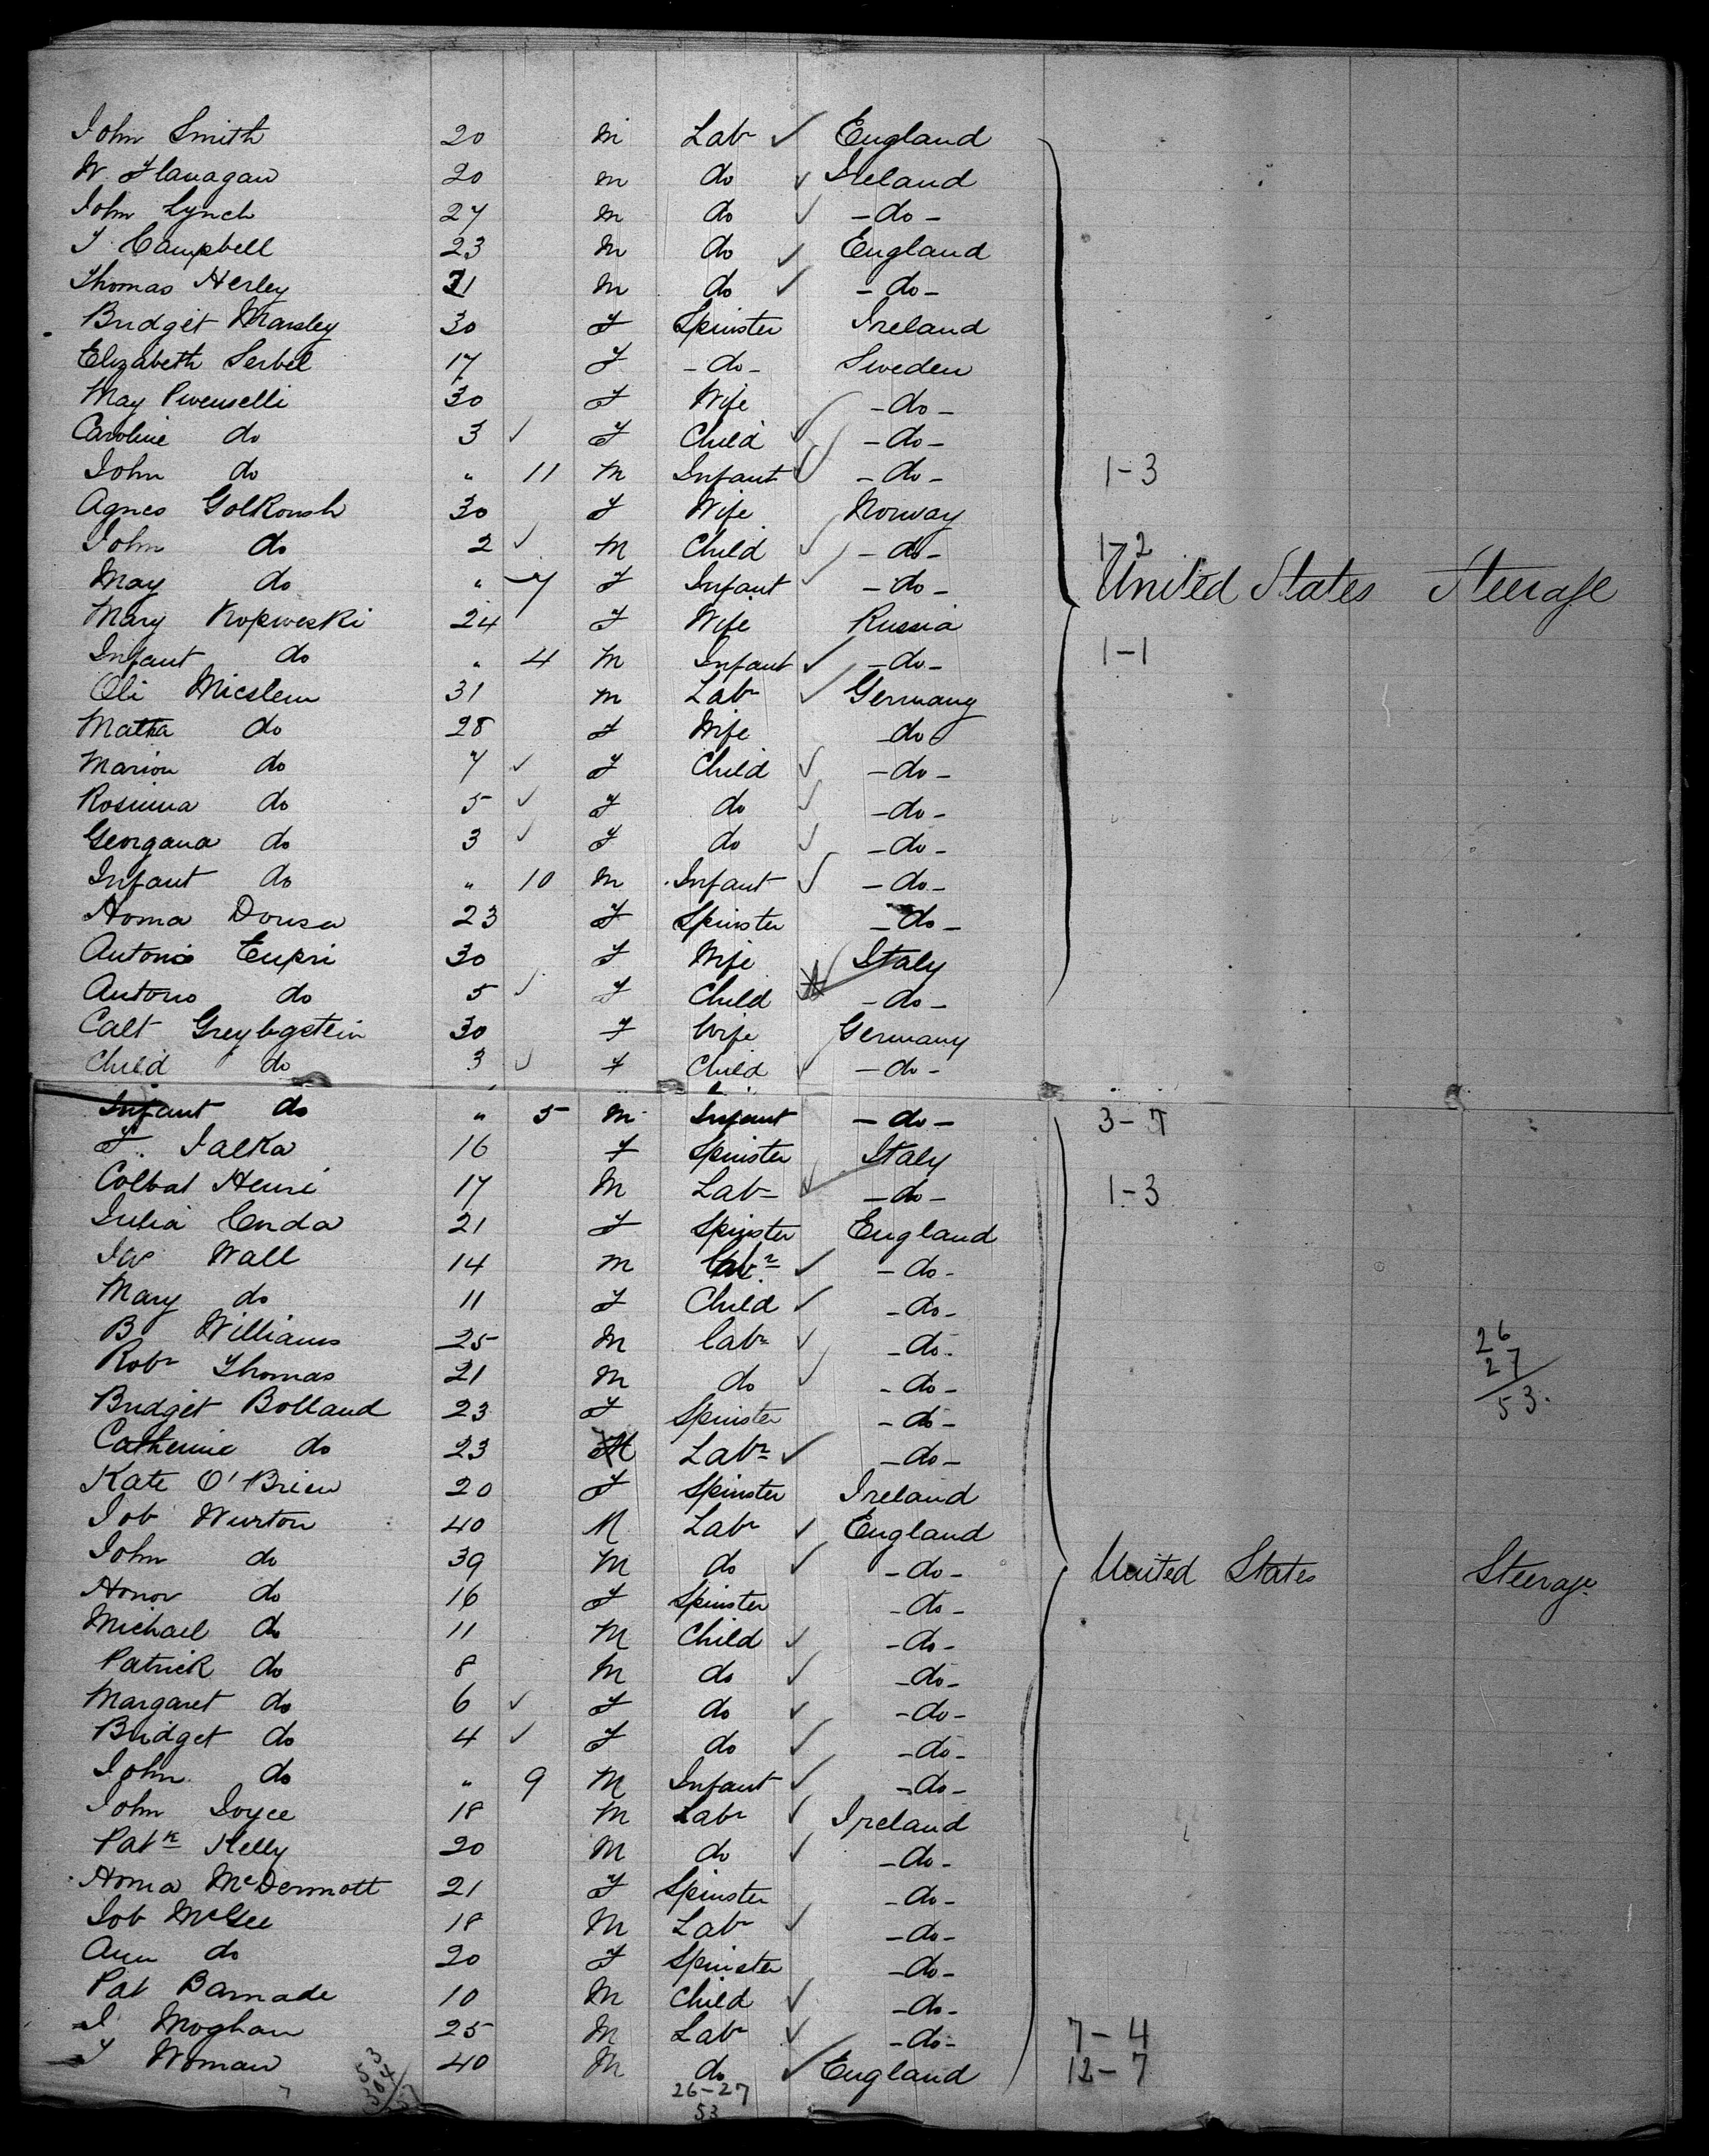 John Smith 20 M Labr ✓ England
W. Flanagan 20 M do ✓ Ireland
John Lynch 27 M do ✓ - do -
J. Campbell 23 M do ✓ England
Thomas Herley 21 M do ✓ - do -
Bridget Mansley 30 F Spinster Ireland
Elizabeth Serbel 17 F - do - Sweden
May 30 F Wife - do -
Caroline do 3 ✓ F Child ✓ - do -
John do " 11 M Infant ✓ - do - 1-3
Agnes Golkonsh 30 F Wife Norway
John do 2 ✓ M Child ✓ - do - 1-2
May do " 7 F Infant ✓ - do - United States Steerage
Mary Kopweski 24 F Wife Russia
Infant do " 4 M Infant ✓ - do - 1-1
Oli Micslem 31 M Labr ✓ Germany
Matha do 28 F Wife do
Marion do 7 ✓ F Child ✓ - do -
Rosinna do 5 ✓ F do ✓ - do -
Georgana do 3 ✓ F do ✓ - do -
Infant do " 10 M Infant ✓ - do -
Homa Dousa 23 F Spinster - do -
Antonio Eupri 30 F Wife Italy
Antono do 5 ✓ F Child - do -
Calt Greybgstein 30 F Wife Germany
Child do 3 ✓ F Child ✓ - do -
Infant do " 5 M Infant - do - 3-7
F. Jalka 16 F Spinster Italy
Colbat Henri 17 M Labr ✓ - do - 1-3
Julia Conda 21 F Spinster England
Wall 14 M Labr ✓ - do -
Mary do 11 F Child ✓ - do -
B Williams 25 M Labr ✓ - do -
26
Robr Thomas 21 M do ✓ - do - 27
Bridget Bolland 23 F Spinster - do - 53.
Catherine do 23 M Labr ✓ - do -
Kate O'Brien 20 F Spinster Ireland
Job Wurton 40 M Labr ✓ England
John do 39 M do ✓ - do - United States Steerage
Honor do 16 F Spinster - do -
Michael do 11 M Child ✓ - do -
Patrick do 8 M do ✓ - do -
Margaret do 6 ✓ F do ✓ - do -
Bridget do 4 ✓ F do ✓ - do -
John do " 9 M Infant ✓ - do -
John Joyce 18 M Labr ✓ Ireland
Patk Kelly 20 M do ✓ - do -
Homa McDermott 21 F Spinster - do -
Job McGee 18 M Labr ✓ - do -
Ann do 20 F Spinster - do -
Pat Barnade 10 M Child ✓ - do -
J Moghan 25 M Labr ✓ - do - 7-4
J Woman 40 M do ✓ England 12-7
53
304
26-27
53